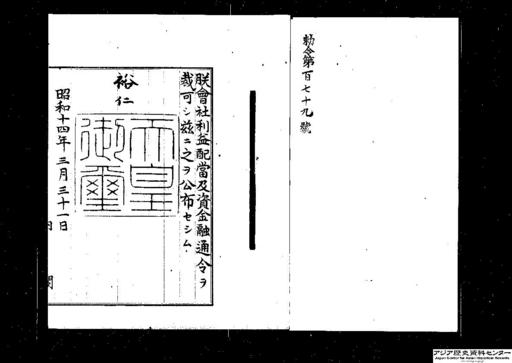 勅令第百七十九號
朕會社利益配當及資金融通令ヲ
裁可シ茲ニ之ヲ公布セシム
裕仁
天皇
御璽
昭和十四年三月三十一日
アジア歴史資料センター
Japan Center for Asian Historical Records